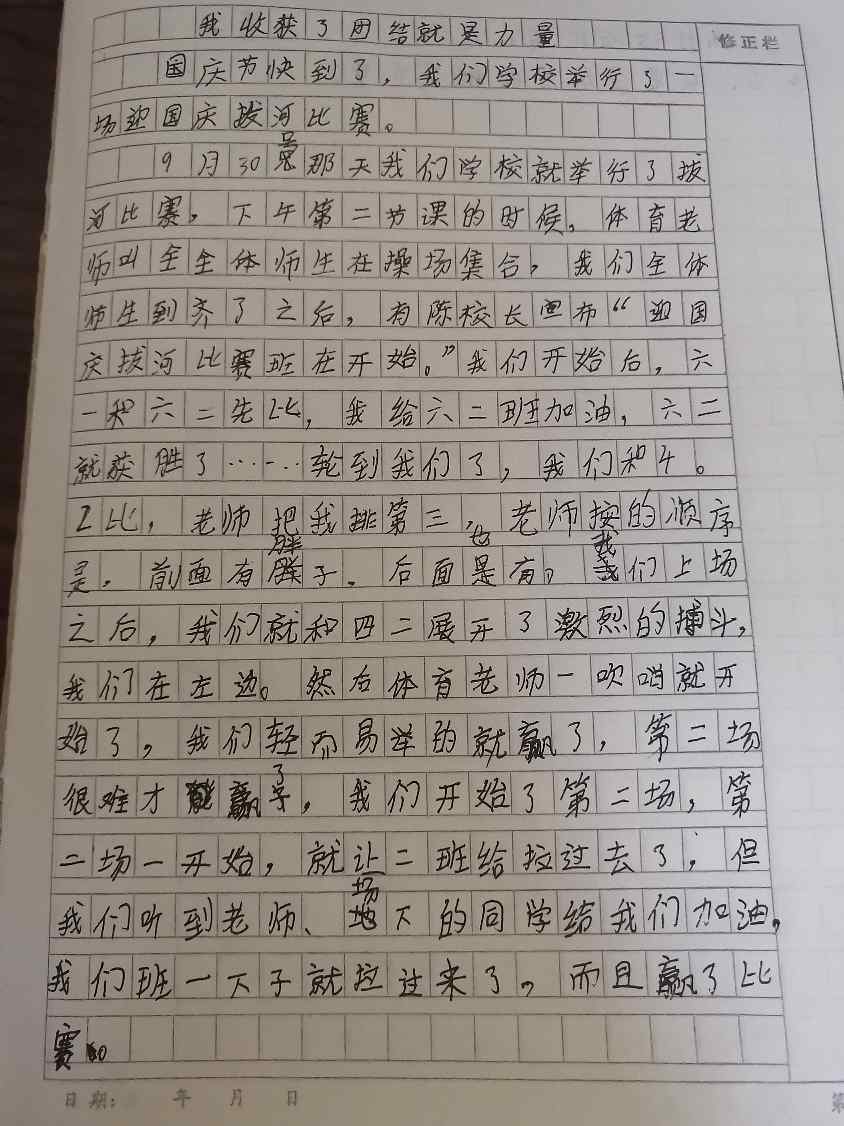 我收获了团结就是力量
修正栏
国庆节快到了，我们学校举行了一
场迎国庆拔河比赛。
9月30号那天我们学校就举行了拔
河比赛，下午第二节课的时候，体育老
师叫全全体师生在操场集合，我们全体
师生到齐了之后，有陈校长宣布“迎国
庆拔河比赛班在开始。”我们开始后，六
一和六二先比，我给六二班加油，六二
就获胜了……轮到我们了，我们和4。
2比，老师把我排第三，老师按的顺序
是，前面有胖子。后面也是有，我们上场
之后，我们就和四二展开了激烈的搏斗，
我们在左边。然后体育老师一吹哨就开
始了，我们轻而易举的就赢了，第二场
很难才赢了，我们开始了第二场，第
二场一开始，就让二班给拉过去了，但
我们听到老师、场下的同学给我们加油，
我们班一下子就拉过来了，而且赢了比
赛。
日期： 年 月 日
第